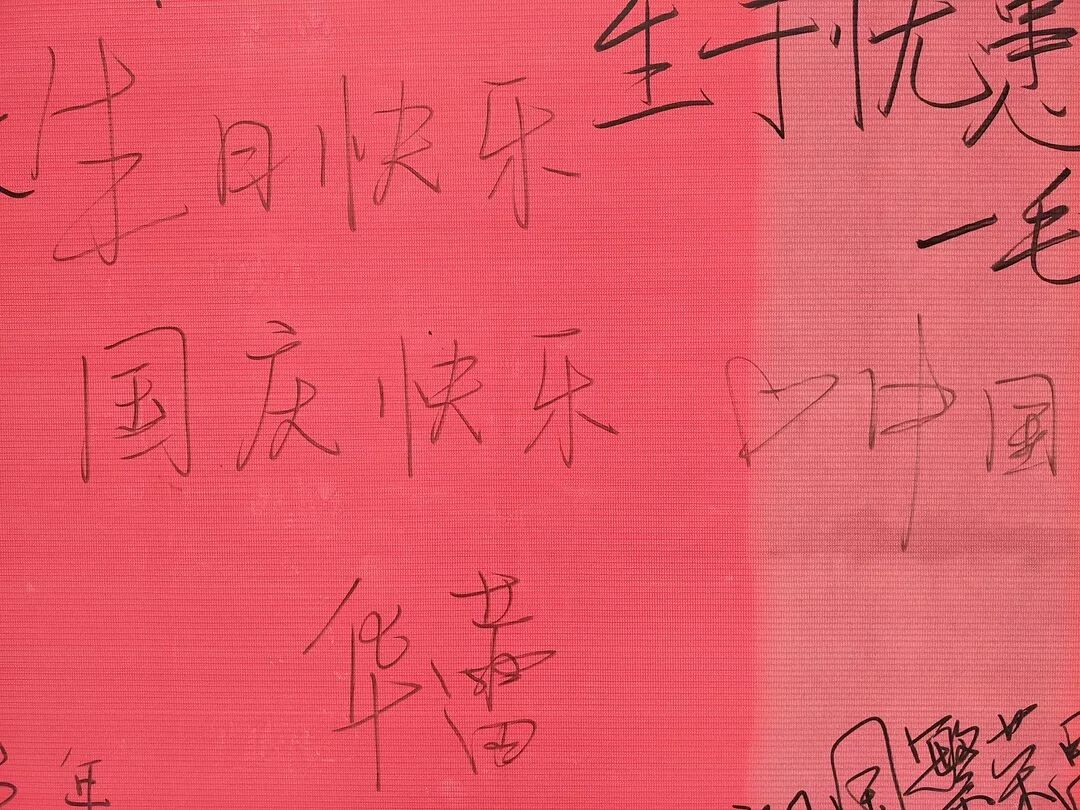 生日快乐
生于忧患
一毛
国庆快乐
♡中国
华蕾
国繁荣